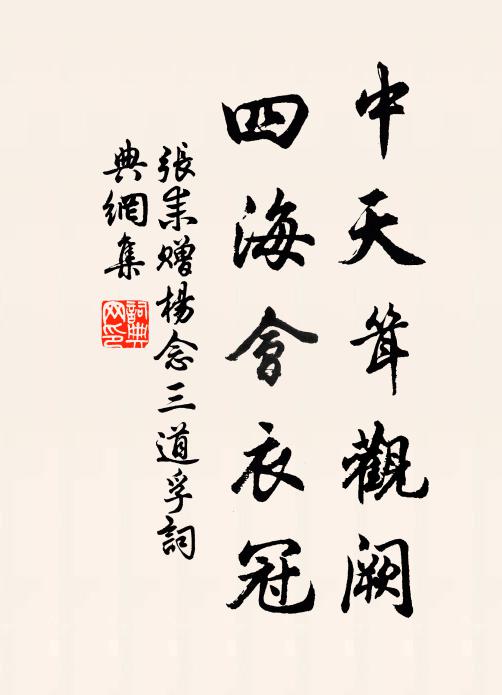 中天聳觀闕
四海會衣冠
張耒贈楊念三道孚詞
典網集
詞典
網印